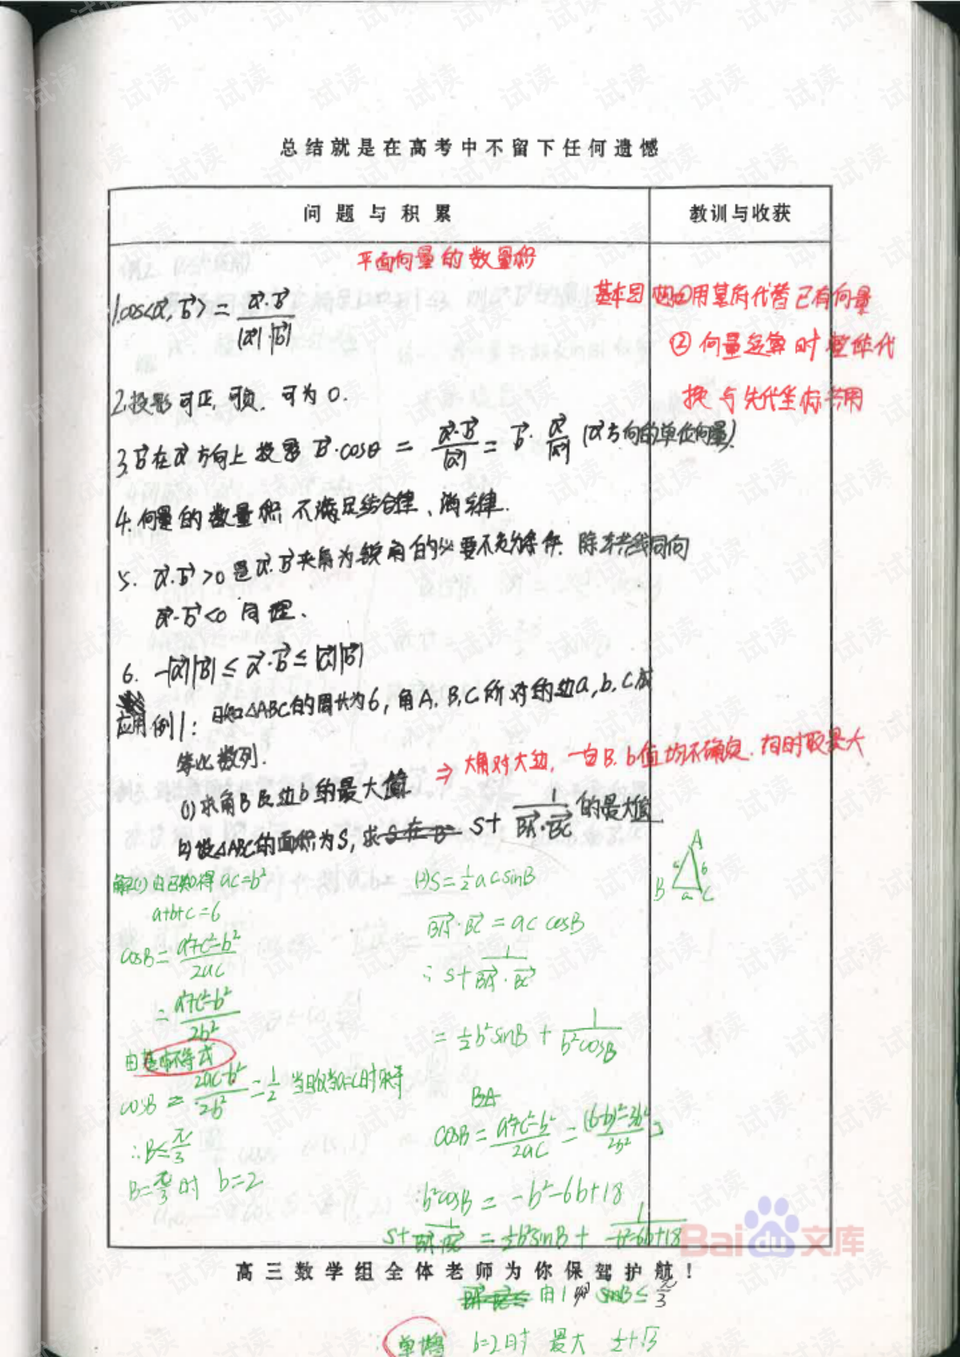 总结就是在高考中不留下任何遗憾
问题与积累
教训与收获
平面向量的数量积
1.cos<a⃗,b⃗> = a⃗·b⃗ / |a⃗|·|b⃗|
基本图 ①用基底代替已有向量
②向量运算时整体代
换与先代坐标共用
2.投影可正,可负,可为0.
3.b⃗在a⃗方向上投影 b⃗·cosθ = a⃗·b⃗/|a⃗| = b⃗·a⃗/|a⃗| (a⃗方向的单位向量)
4.向量的数量积不满足结合律、消去律.
5. a⃗·b⃗>0是a⃗·b⃗夹角为锐角的必要不充分条件. 除去共线同向
a⃗·b⃗<0同理.
6. -|a⃗||b⃗| ≤ a⃗·b⃗ ≤ |a⃗||b⃗|
应用 例1: 已知△ABC的周长为6,角A,B,C所对的边a,b,c成
等比数列.
⇒ 大角对大边,一白B.b值均不确定.相时取最大
(1)求角B及边b的最大值
(2)设△ABC的面积为S,求 S+ 1/BA⃗·BC⃗ 的最大值
A
c b
B a C
解(1)由已知得 ac=b²
a+b+c=6
cosB= a²+c²-b² / 2ac
= a²+c²-b² / 2b²
由基本不等式
cosB ≥ 2ac-b² / 2b² = 1/2 当且仅当a=c时取等
∴B≤π/3
B=π/3时 b=2
(2)S=½acsinB
BA⃗·BC⃗ = ac cosB
∴ S+ 1/BA⃗·BC⃗
= ½b²sinB + 1/b²cosB
BA
cosB= a²+c²-b² / 2ac = (6-b)²-3b² / 2b²
∴b²cosB = -b²-6b+18
S+ 1/BA⃗·BC⃗ = ½b²sinB + 1/-b²-6b+18
Bai du 文库
高三数学组全体老师为你保驾护航!
由1 sinB≤ π/3
单增 b=2时 最大 ½+√3